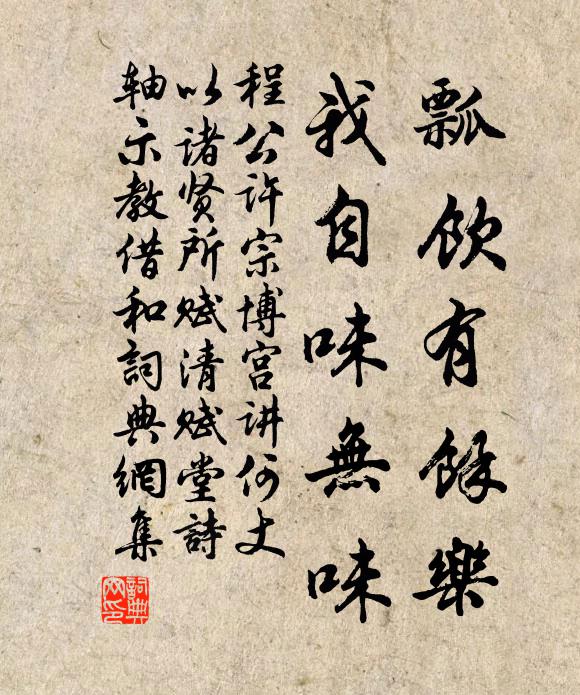 瓢飲有餘樂
我自味無味
程公许宗博宫讲何丈
以诸贤所赋清赋堂詩
轴示教借和詞典網集
詞典網印